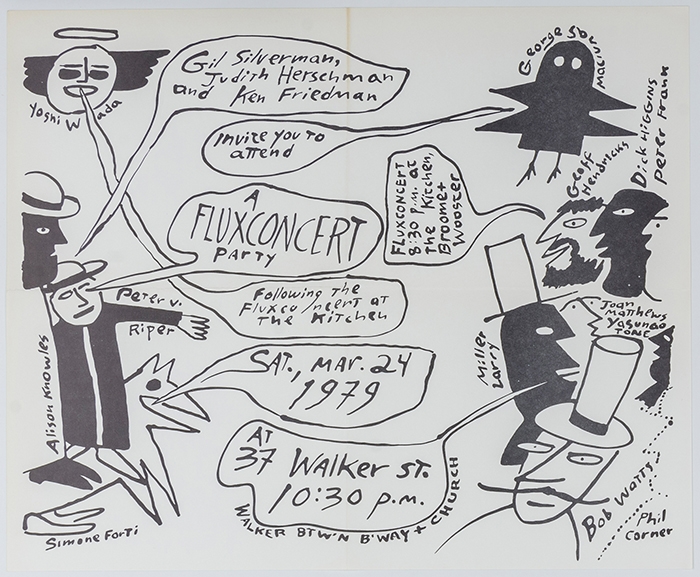 Yoshi Wada
Gil Silverman,
Judith Herschman
and Ken Friedman
Invite you to
attend
A
FLUXCONCERT
PARTY
Following The
Fluxconcert at
The Kitchen
SAT., MAR. 24
1979
AT
37 Walker st.
10:30 p.m.
WALKER BTW'N B'WAY + CHURCH
Peter v.
Riper
Alison Knowles
Simone Forti
FLUXCONCERT
8:30 p.m. at
The Kitchen,
Broome +
Wooster
George
Geoff
Hendricks
Dick Higgins
Peter Frank
Joan
Matthews
Yasunao
Tone
Miller
Larry
Bob Watts
Phil
Corner